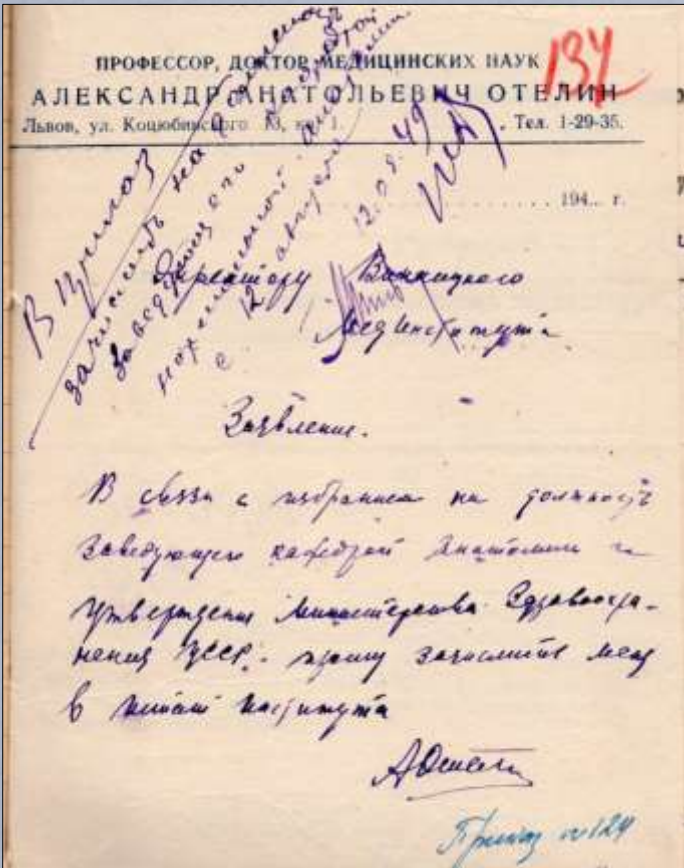 ПРОФЕССОР, ДОКТОР МЕДИЦИНСКИХ НАУК
АЛЕКСАНДР АНАТОЛЬЕВИЧ ОТЕЛИН
Львов, ул. Коцюбинского 13, кв. 1. Тел. 1-29-35.
137
194... г.
В приказ
зачислить на должность
заведующего кафедрой
нормальной анатомии
с 12 августа
12.08.49
Директору Винницкого
Мединститута
Заявление.
В связи с избранием на должность
заведующего кафедрой анатомии и
утверждения Министерства Здравоохра-
нения УССР. прошу зачислить меня
в штат института
АОтелин
Приказ №124